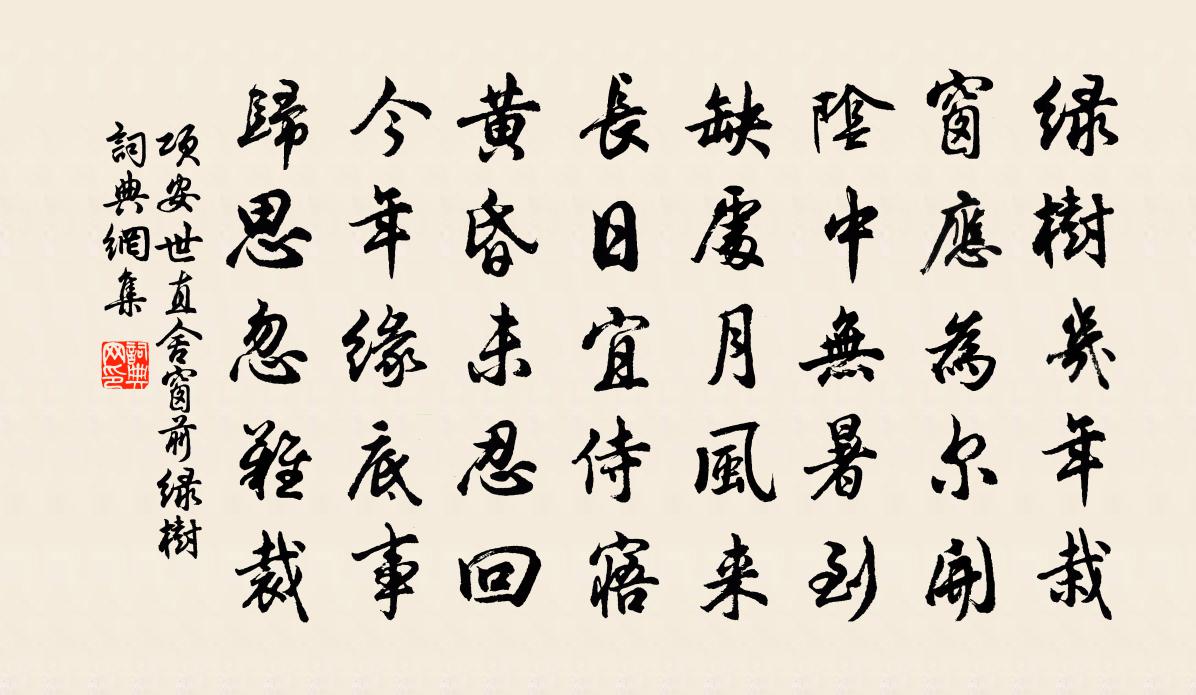 緑樹幾年栽
窗應為尔開
陰中無暑到
缺處月風来
長日宜侍寤
黄昏未忍回
今年緣底事
歸思忽難裁
項安世直舍窗前緑樹
詞典網集
詞典网印